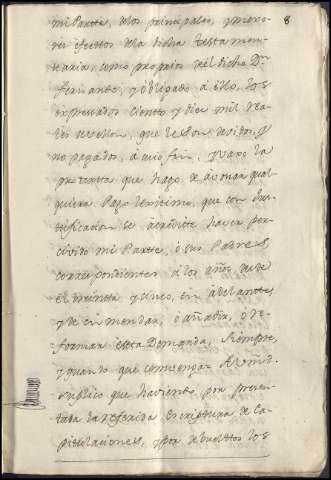 8
mi Parte, delos principales, y mexo-
res efectos dela dicha testamen-
taria, como propios del dicho Dn.
fernando, y obligado á ello, los
expresados ciento y diez mil rea-
les de vellon, que le son devidos, y
no pagados, á cuio fin, y vaxo la
protexta que hago de abonar qual-
quiera Pago lexitimo, que con Jus-
tificacion se acredite haver per-
civido mi Parte, ó sus Padres
correspondientes á los años desde
el treinta y cinco, en adelante,
y de enmendar, ó añadir, ó re-
formar esta Demanda, siempre,
y quando que combenga: A Vmd.
suplico que haviendo por presen-
tada la referida escriptura de Ca-
pitulaciones, y por debueltos los